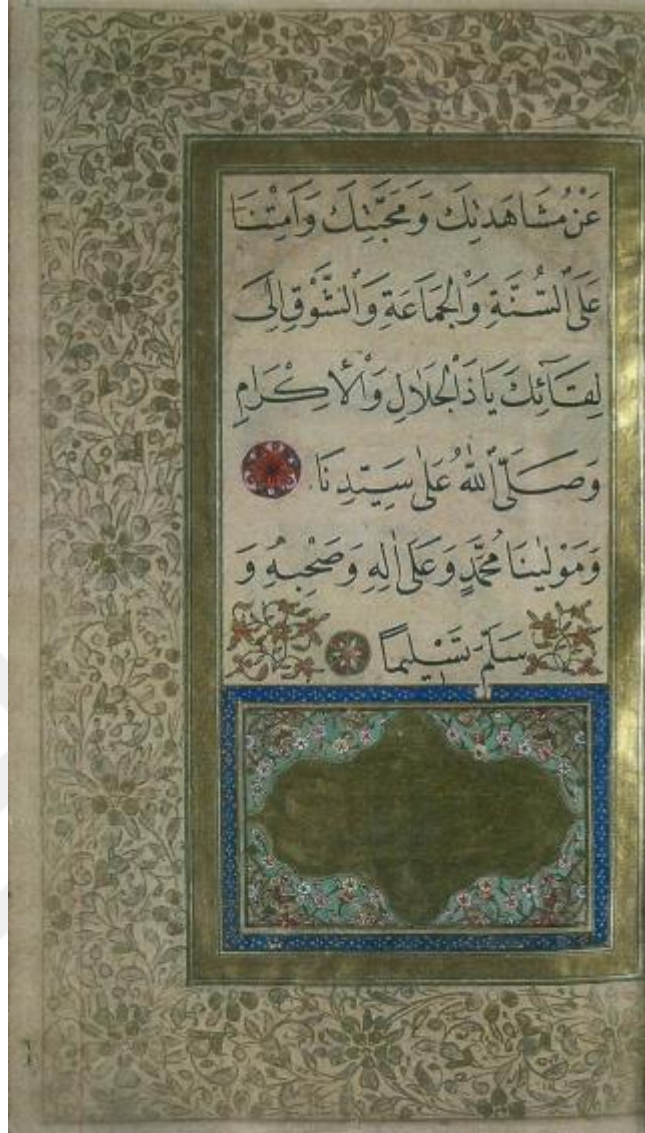 عَنْ مُشَاهَدَتِكَ وَمَحَبَّتِكَ وَاَمِتْنَا
عَلَى السُّنَّةِ وَالْجَمَاعَةِ وَالشَّوْقِ اِلٰى
لِقَائِكَ يَا ذَا الْجَلَالِ وَالْاِكْرَامِ
وَصَلَّى اللّٰهُ عَلٰى سَيِّدِنَا
وَمَوْلٰينَا مُحَمَّدٍ وَعَلٰى اٰلِهِ وَصَحْبِهِ وَ
سَلَّمَ تَسْلِيمًا